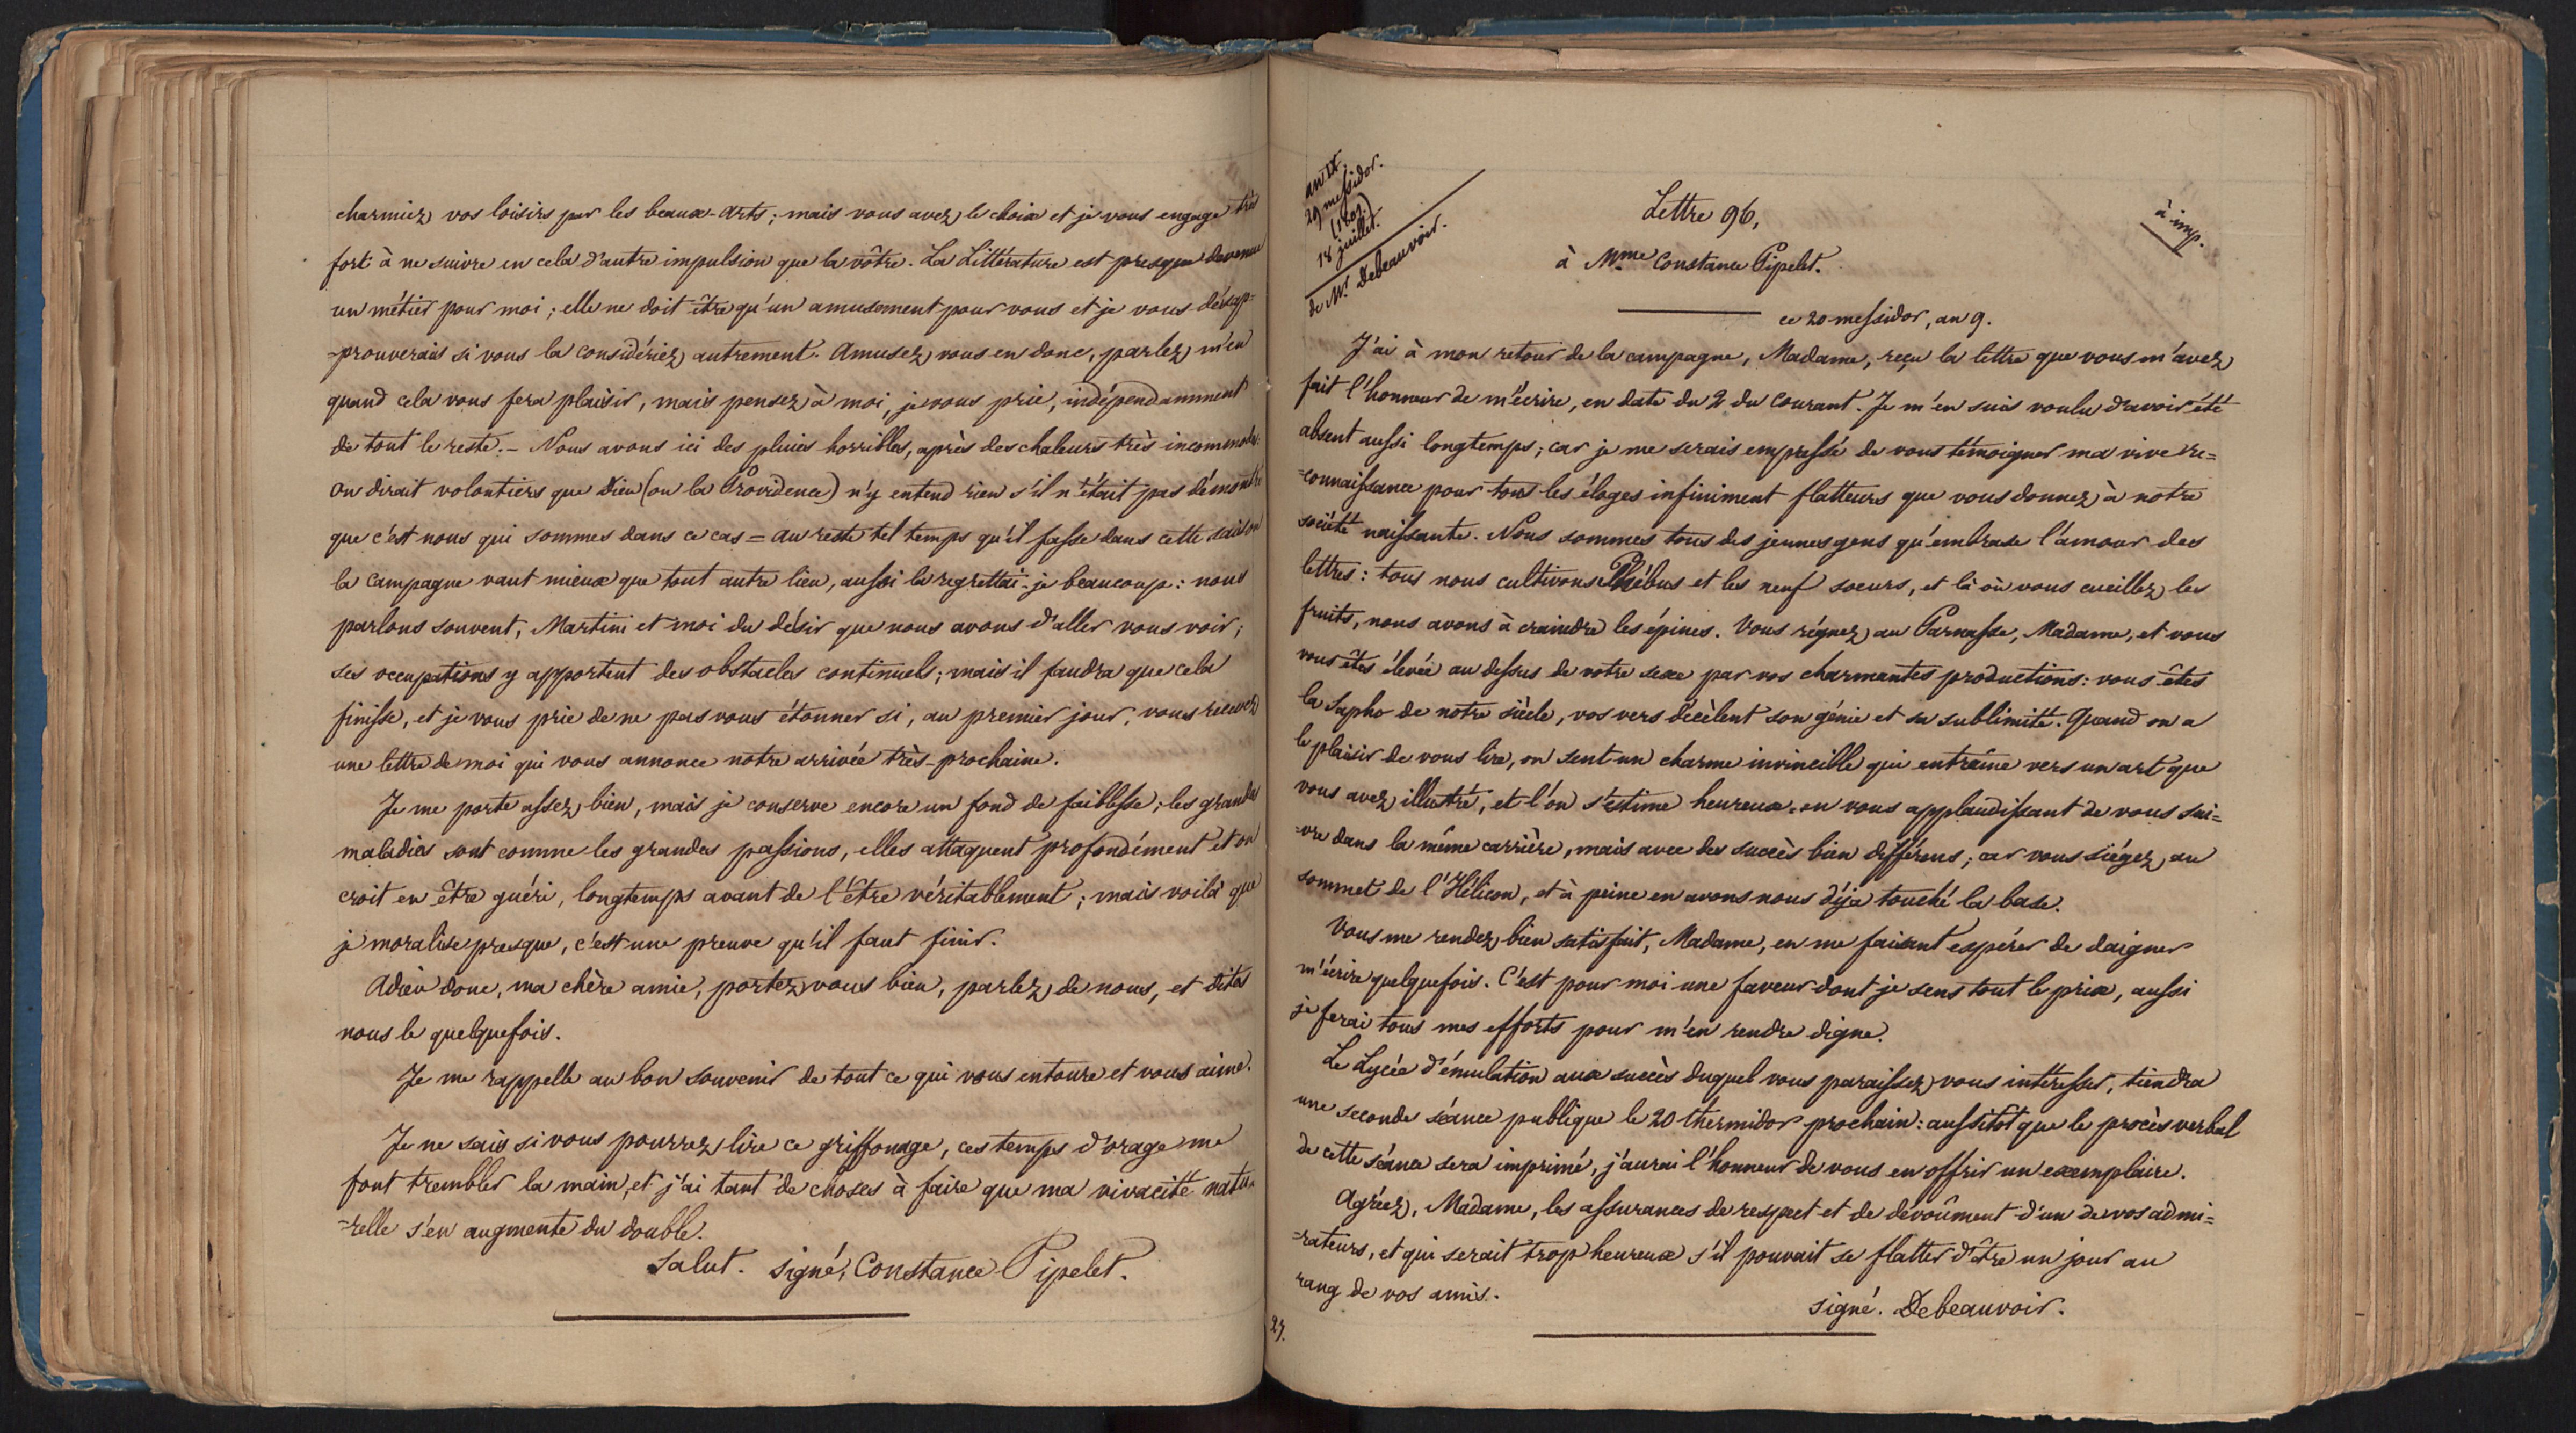 charmiez vos loisirs par les beaux-arts; mais vous avez le choix et je vous engage très
fort à ne suivre en cela d'autre impulsion que la vôtre. La Littérature est presque devenue
un métier pour moi; elle ne doit être qu'un amusement pour vous et je vous désap=
-prouverais si vous la considériez autrement. Amusez vous en donc, parlez m'en
quand cela vous fera plaisir, mais pensez à moi, je vous prie, indépendamment
de tout le reste. - Nous avons ici des pluies horribles, après des chaleurs très incommodes.
on dirait volontiers que Dieu (ou la Providence) n'y entend rien s'il n'était pas démontré
que c'est nous qui sommes dans ce cas = au reste tel temps qu'il fasse dans cette saison
la campagne vaut mieux que tout autre lieu, aussi la regrettai-je beaucoup: nous
parlons souvent, Martini et moi du désir que nous avons d'aller vous voir;
ses occupations y apportent des obstacles continuels; mais il faudra que cela
finisse, et je vous prie de ne pas vous étonner si, au premier jour, vous recevez
une lettre de moi qui vous annonce notre arrivée très-prochaine.
Je me porte assez bien, mais je conserve encore un fond de faiblesse; les grandes
maladies sont comme les grandes passions, elles attaquent profondément et on
croit en être guéri, longtemps avant de l'être véritablement; mais voilà que
je moralise presque, c'est une preuve qu'il faut finir.
Adieu donc, ma chère amie, portez vous bien, parlez de nous, et dites
nous le quelquefois.
Je me rappelle au bon souvenir de tout ce qui vous entoure et vous aime.
Je ne sais si vous pourrez lire ce griffonage, ces temps d'orage me
font trembler la main, et j'ai tant de choses à faire que ma vivacité natu-
-relle s'en augmente du double.
Salut. signé, Constance Pipelet.
an IX
29 messidor.
(1801)
18 juillet.
de Mr Debeauvoir.
Lettre 96,
à imp.
à Mme Constance Pipelet.
ce 20 messidor, an 9.
J'ai à mon retour de la campagne, Madame, reçu la lettre que vous m'avez
fait l'honneur de m'écrire, en date du 2 du courant. Je m'en suis voulu d'avoir été
absent aussi longtemps; car je me serais empressé de vous témoigner ma vive re=
=connaissance pour tous les éloges infiniment flatteurs que vous donnez à notre
société naissante. Nous sommes tous des jeunes gens qu'embrase l'amour des
lettres: tous nous cultivons Phébus et les neuf soeurs, et là où vous cueillez les
fruits, nous avons à craindre les épines. Vous régnez au Parnasse, Madame, et vous
vous êtes élevée au dessus de votre sexe par vos charmantes productions: vous êtes
la Sapho de notre siècle, vos vers décèlent son génie et sa sublimité. Quand on a
le plaisir de vous lire, on sent un charme invincible qui entraîne vers un art que
vous avez illustré, et l'on s'estime heureux en vous applaudissant de vous sui=
-vre dans la même carrière, mais avec des succès bien différens; car vous siégez au
sommet de l'Hélicon, et à peine en avons nous déja touché la base.
Vous me rendez bien satisfait, Madame, en me faisant espérer de daigner
m'écrire quelquefois. C'est pour moi une faveur dont je sens tout le prix, aussi
je ferai tous mes efforts pour m'en rendre digne.
Le Lycée d'émulation aux succès duquel vous paraissez vous intéresser, tiendra
une seconde séance publique le 20 thermidor prochain: aussitôt que le procès verbal
de cette séance sera imprimé, j'aurai l'honneur de vous en offrir un exemplaire.
Agréez, Madame, les assurances de respect et de dévoûment d'un de vos admi=
-rateurs, et qui serait trop heureux s'il pouvait se flatter d'être un jour au
rang de vos amis.
signé. Debeauvoir.
27.